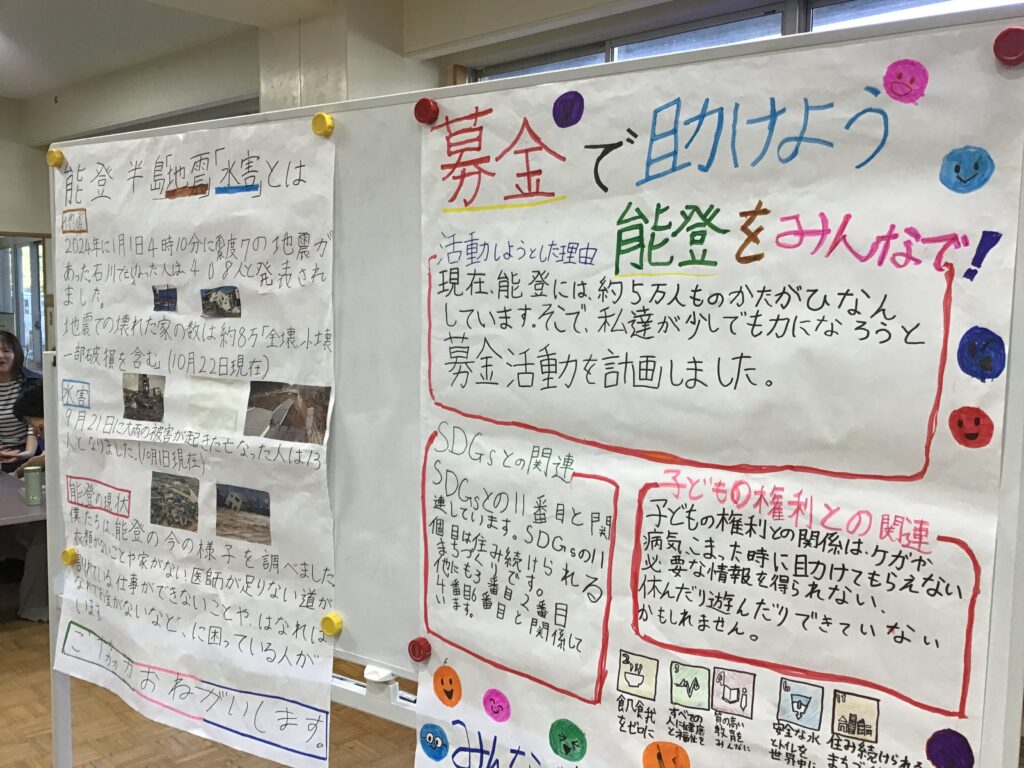 能登半島「地震」「水害」とは
地震
2024年に1月1日4時10分に震度7の地震が
あった。石川でなくなった人は408人と発表され
ました。
地震での壊れた家の数は約8万「全壊、小壊
一部破損を含む」(10月22日現在)
水害
9月21日に大雨の被害が起きた亡なった人は13
人となりました。(10月1日現在)
能登の現状
僕たちは能登の今の様子を調べました
ないことや家がない医師が足りない道が
れている仕事ができないことや、はなれば
など、に困っている人が
います。
ご協力おねがいします。
募金で助けよう
能登をみんなで!
活動しようとした理由
現在、能登には、約5万人ものかたがひなん
しています。そこで、私達が少しでも力になろうと
募金活動を計画しました。
SDGsとの関連
SDGsとの11番目と関
連しています。SDGsの11
個目は住み続けられる
まちづくりです。
他にも3番目2番目
4番目6番目と関係して
います。
子どもの権利との関連
子どもの権利との関係は、ケガや
病気、こまった時に助けてもらえない
必要な情報を得られない、
休んだり遊んだりできていない
かもしれません。
2
飢餓
をゼロに
すべての
人に健康
と福祉を
質の高い
教育を
みんなに
6
安全な水
とトイレを
世界中に
11
住み続けられる
まちづ
みんな